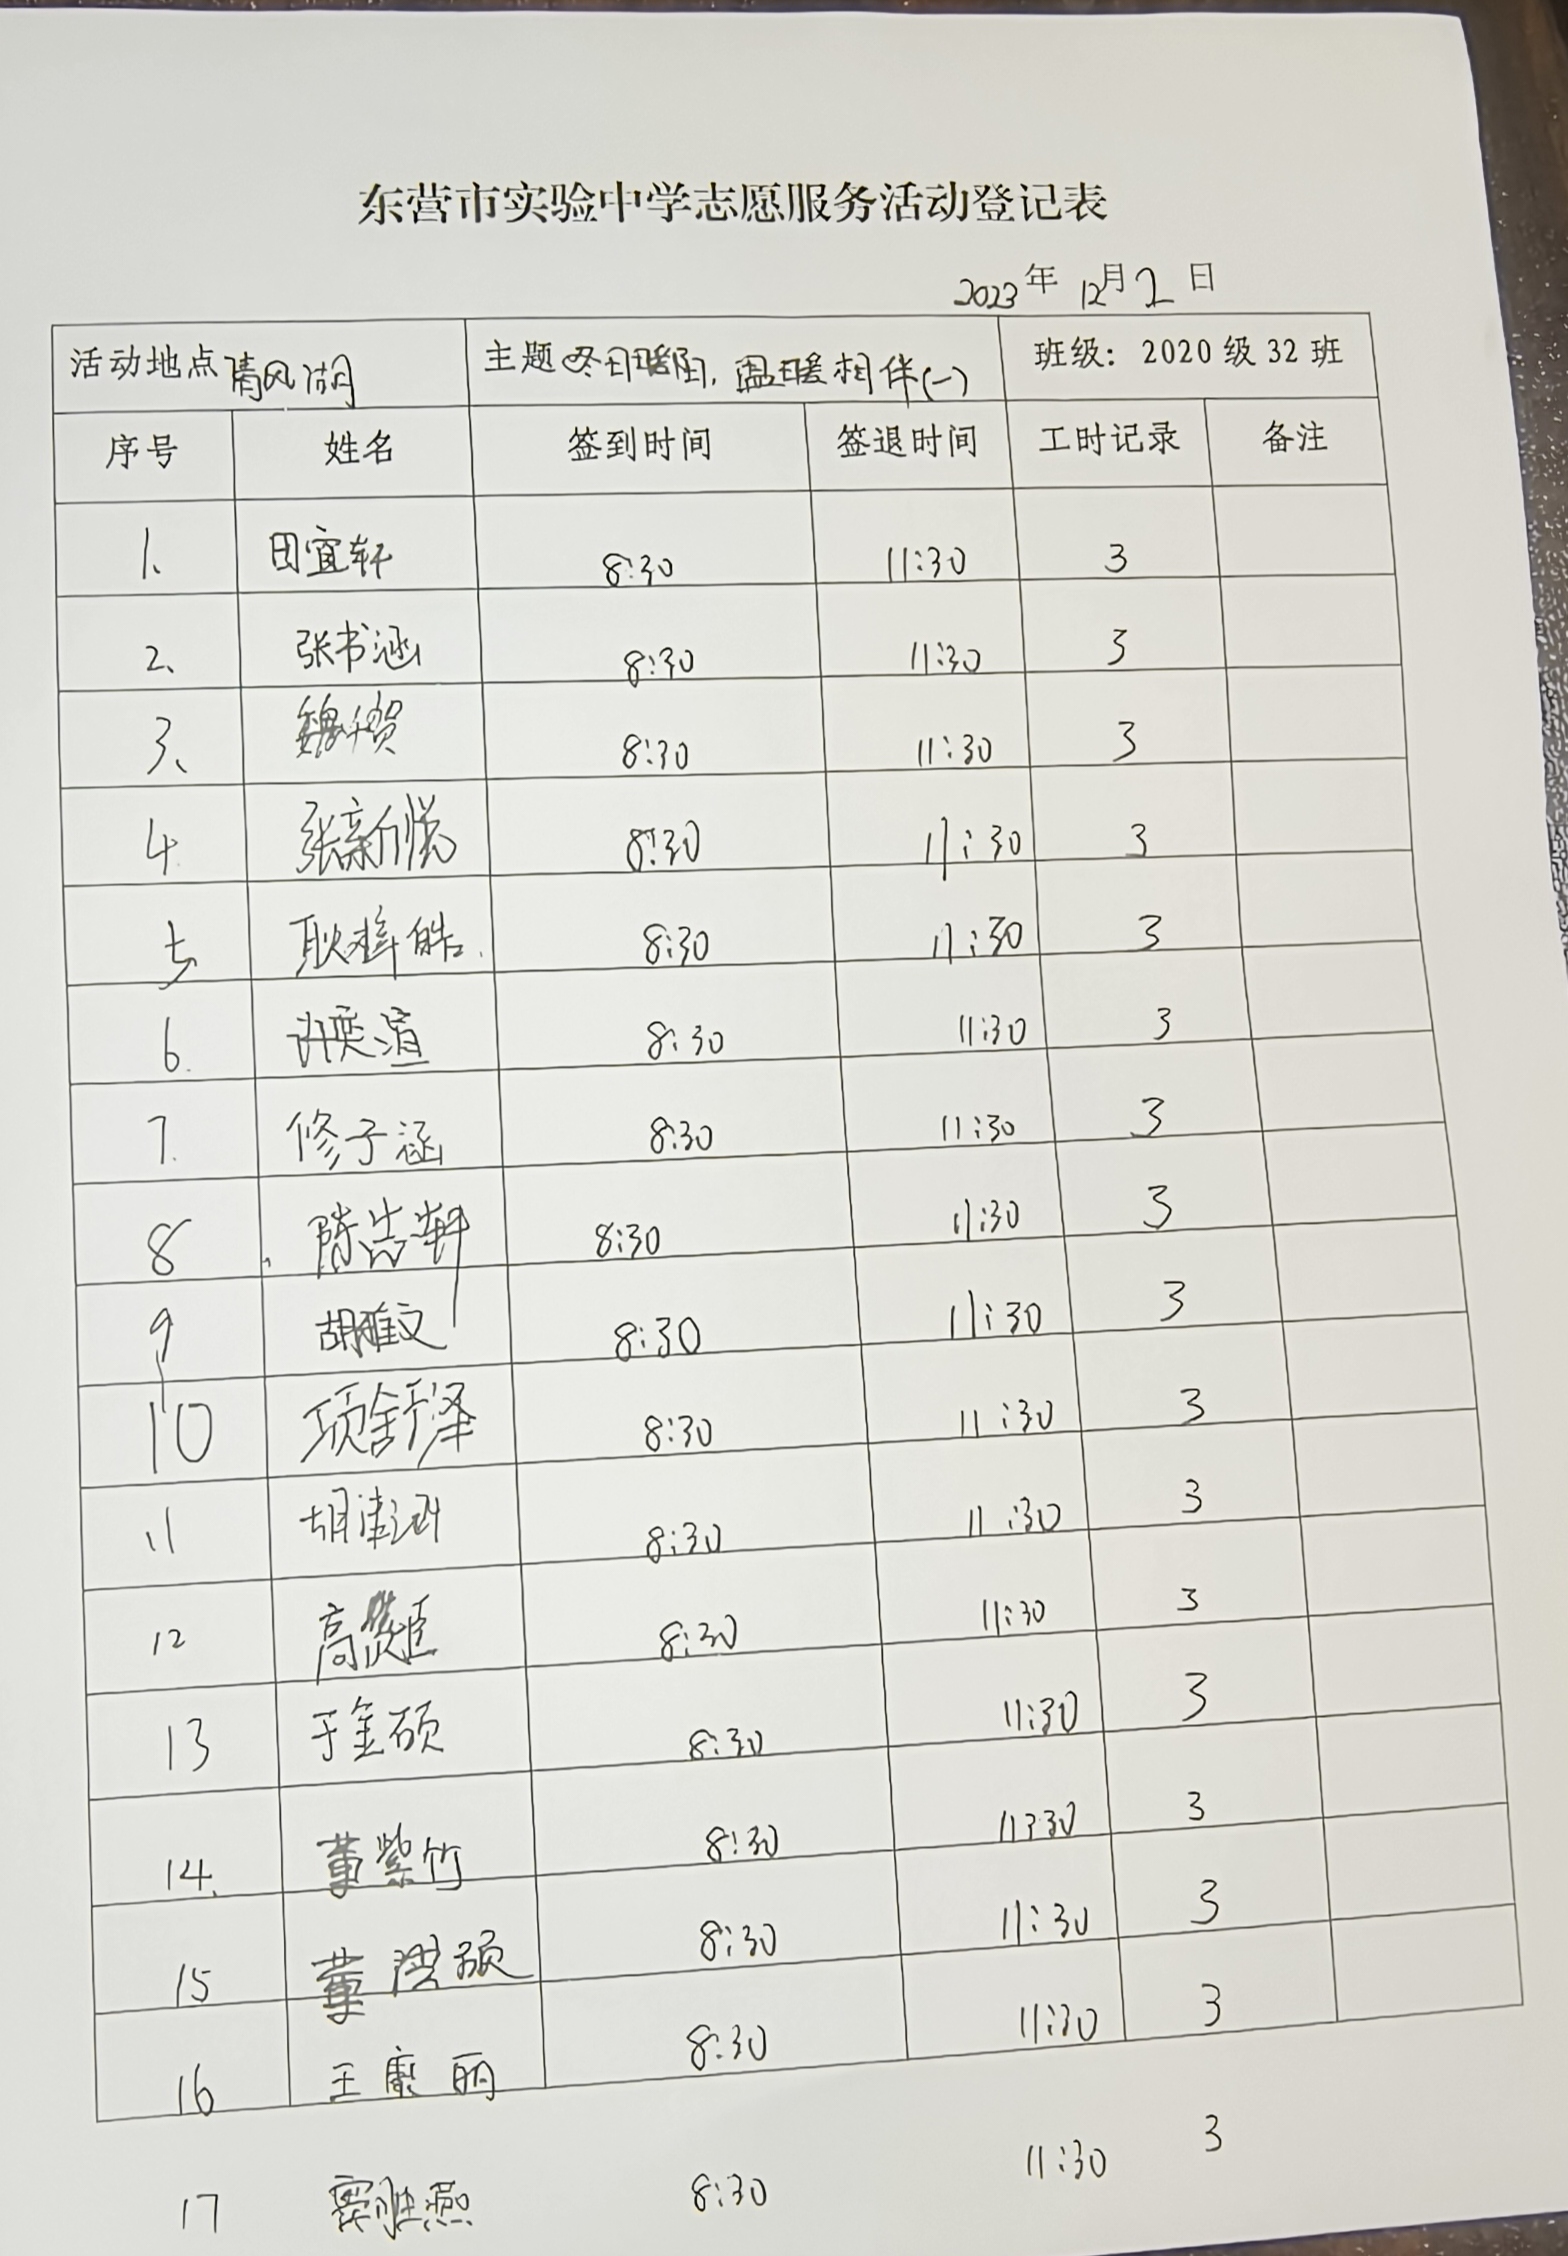 东营市实验中学志愿服务活动登记表
2023年 12月2日
活动地点 清风湖 主题 冬日暖阳,温暖相伴(一) 班级:2020级32班
序号 姓名 签到时间 签退时间 工时记录 备注
1、 田宜轩 8:30 11:30 3
2、 张书涵 8:30 11:30 3
3、 魏千贺 8:30 11:30 3
4. 张新悦 8:30 11:30 3
5 耿梓皓. 8:30 11:30 3
6. 许奕渲 8:30 11:30 3
7. 修子涵 8:30 11:30 3
8 陈浩轩 8:30 11:30 3
9 胡雅文 8:30 11:30 3
10 项舒泽 8:30 11:30 3
11 胡 8:30 11:30 3
12 高 8:30 11:30 3
13 于金硕 8:30 11:30 3
14. 董紫竹 8:30 11:30 3
15 董洪硕 8:30 11:30 3
16 王康丽 8:30 11:30 3
17 窦胜燕 8:30 11:30 3